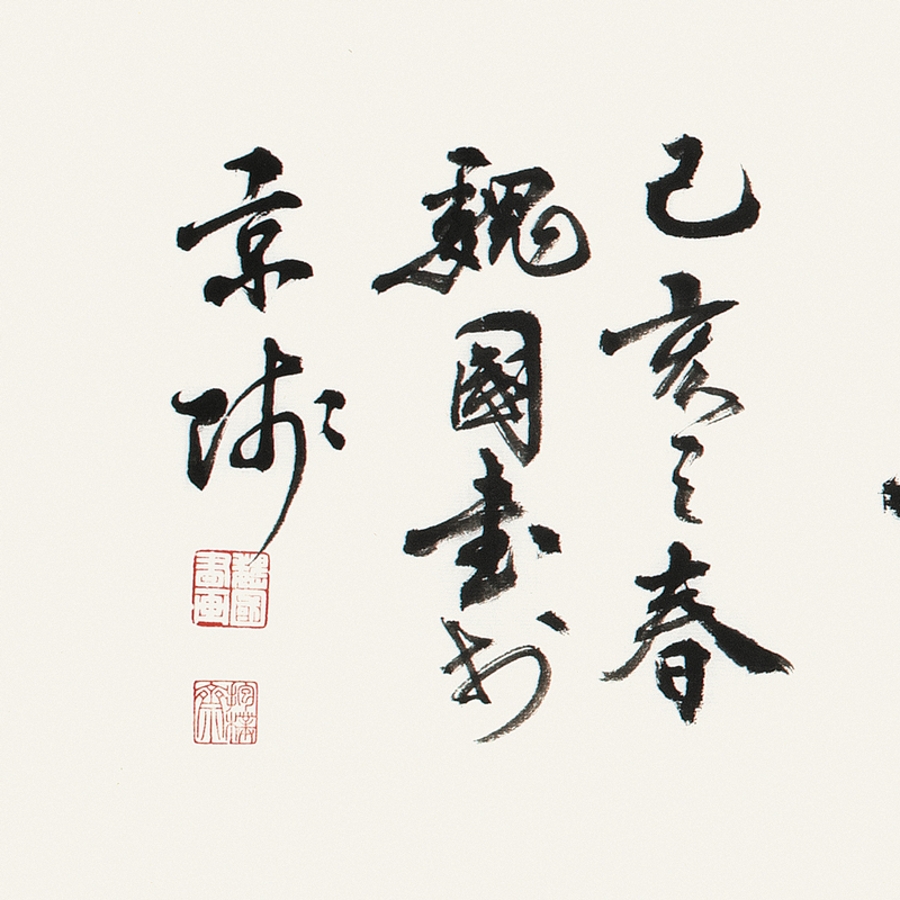 己亥之春
魏國書於
京師
魏國書画